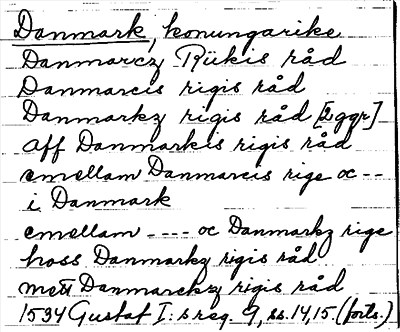 Danmark, konungarike
Danmarcz Rikis råd
Danmarcis rigis råd
Danmarkz rigis råd [2 ggr]
aff Danmarkis rigis råd
emellam Danmarcis rige oc --
i Danmark
emellam ---- oc Danmarkz rige
hoss Danmarkz rigis råd
mett Danmarckz rigis råd
1534 Gustaf I: s reg. 9, ss. 14, 15. (forts.)